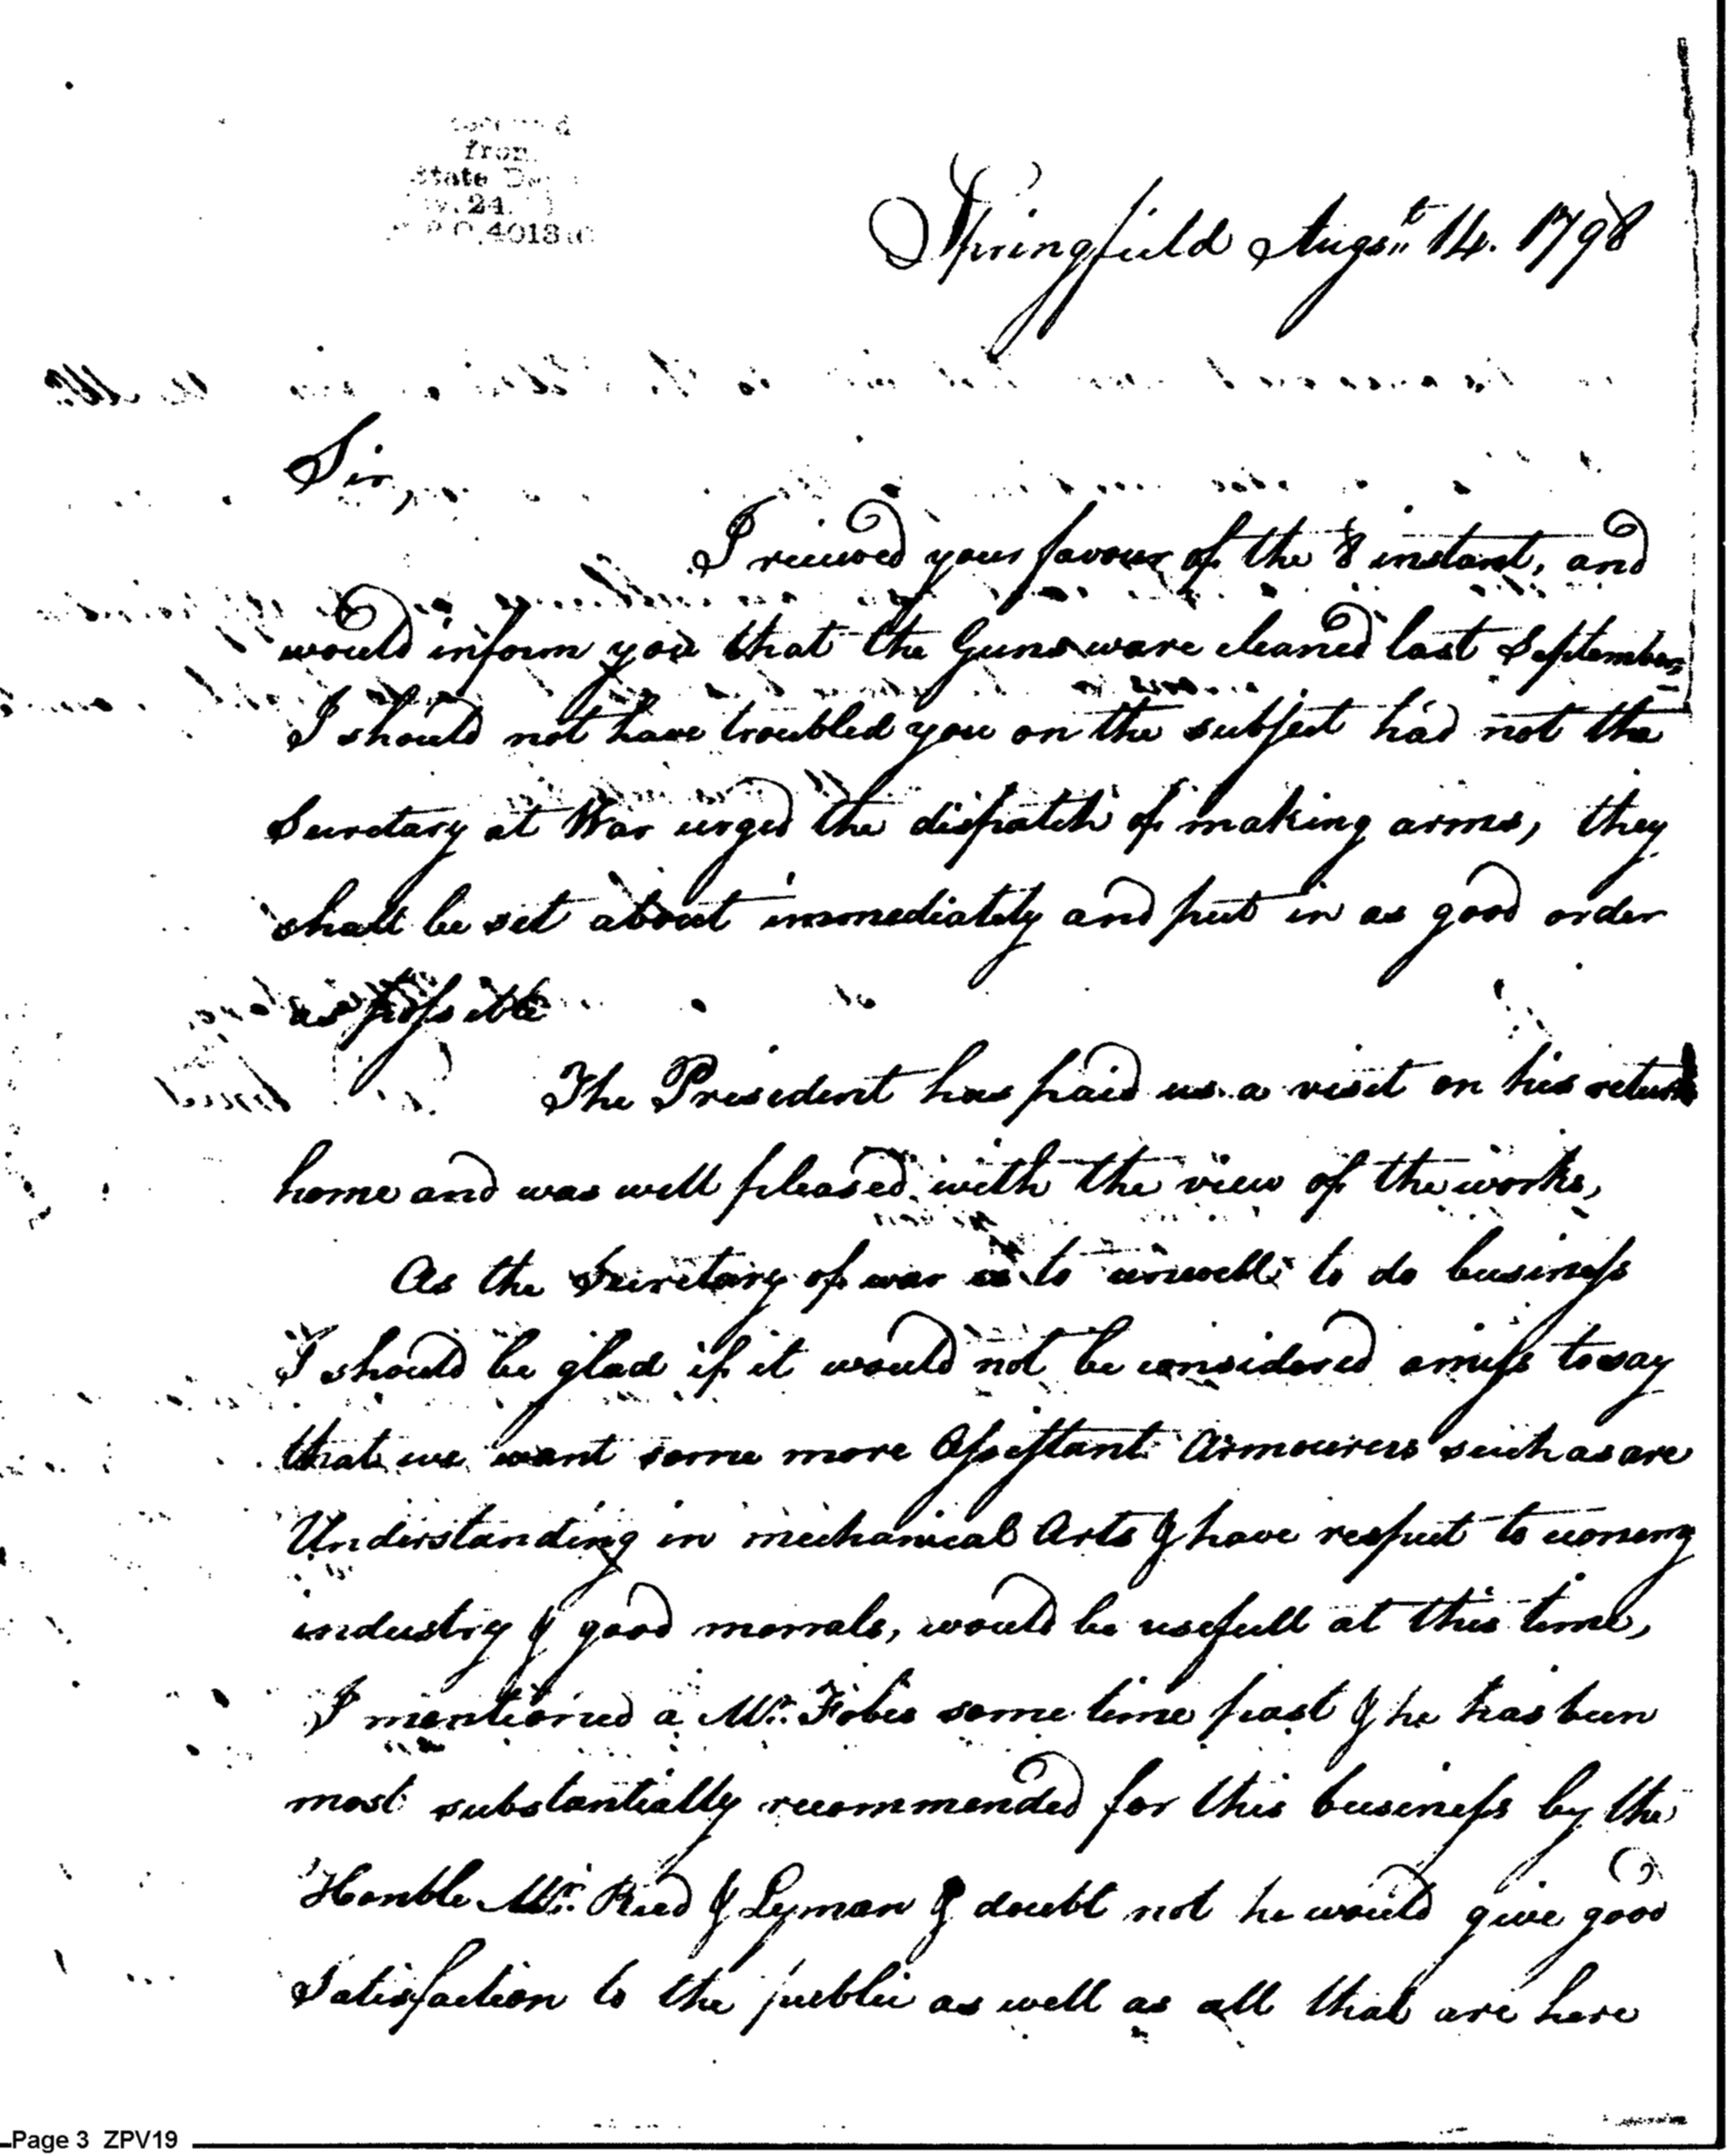 from
State
24
4013
Springfield Augst 14. 1798
Sir,
I received your favour of the 8 instant, and
would inform you that the Guns ware cleaned last September,
I should not have troubled you on the subject had not the
Secretary at War urged the dispatch of making arms, they
shall be set about immediately and put in as good order
as possible
The President has paid us a viset on his return
home and was well pleased with the view of the works,
As the Secretary of war is to unwell to do business
I should be glad if it would not be considered amiss to say
that we want some more Assistant Armourers such as are
Understanding in mechanical Arts & have respect to
industry & good morrals, would be usefull at this time,
I mentioned a Mr. Fobes some time past & he has been
most substantially recommended for this business by the
Honble Mr. Reed & Lyman & doubt not he would give good
Satisfaction to the public as well as all that are here
Page 3 ZPV19